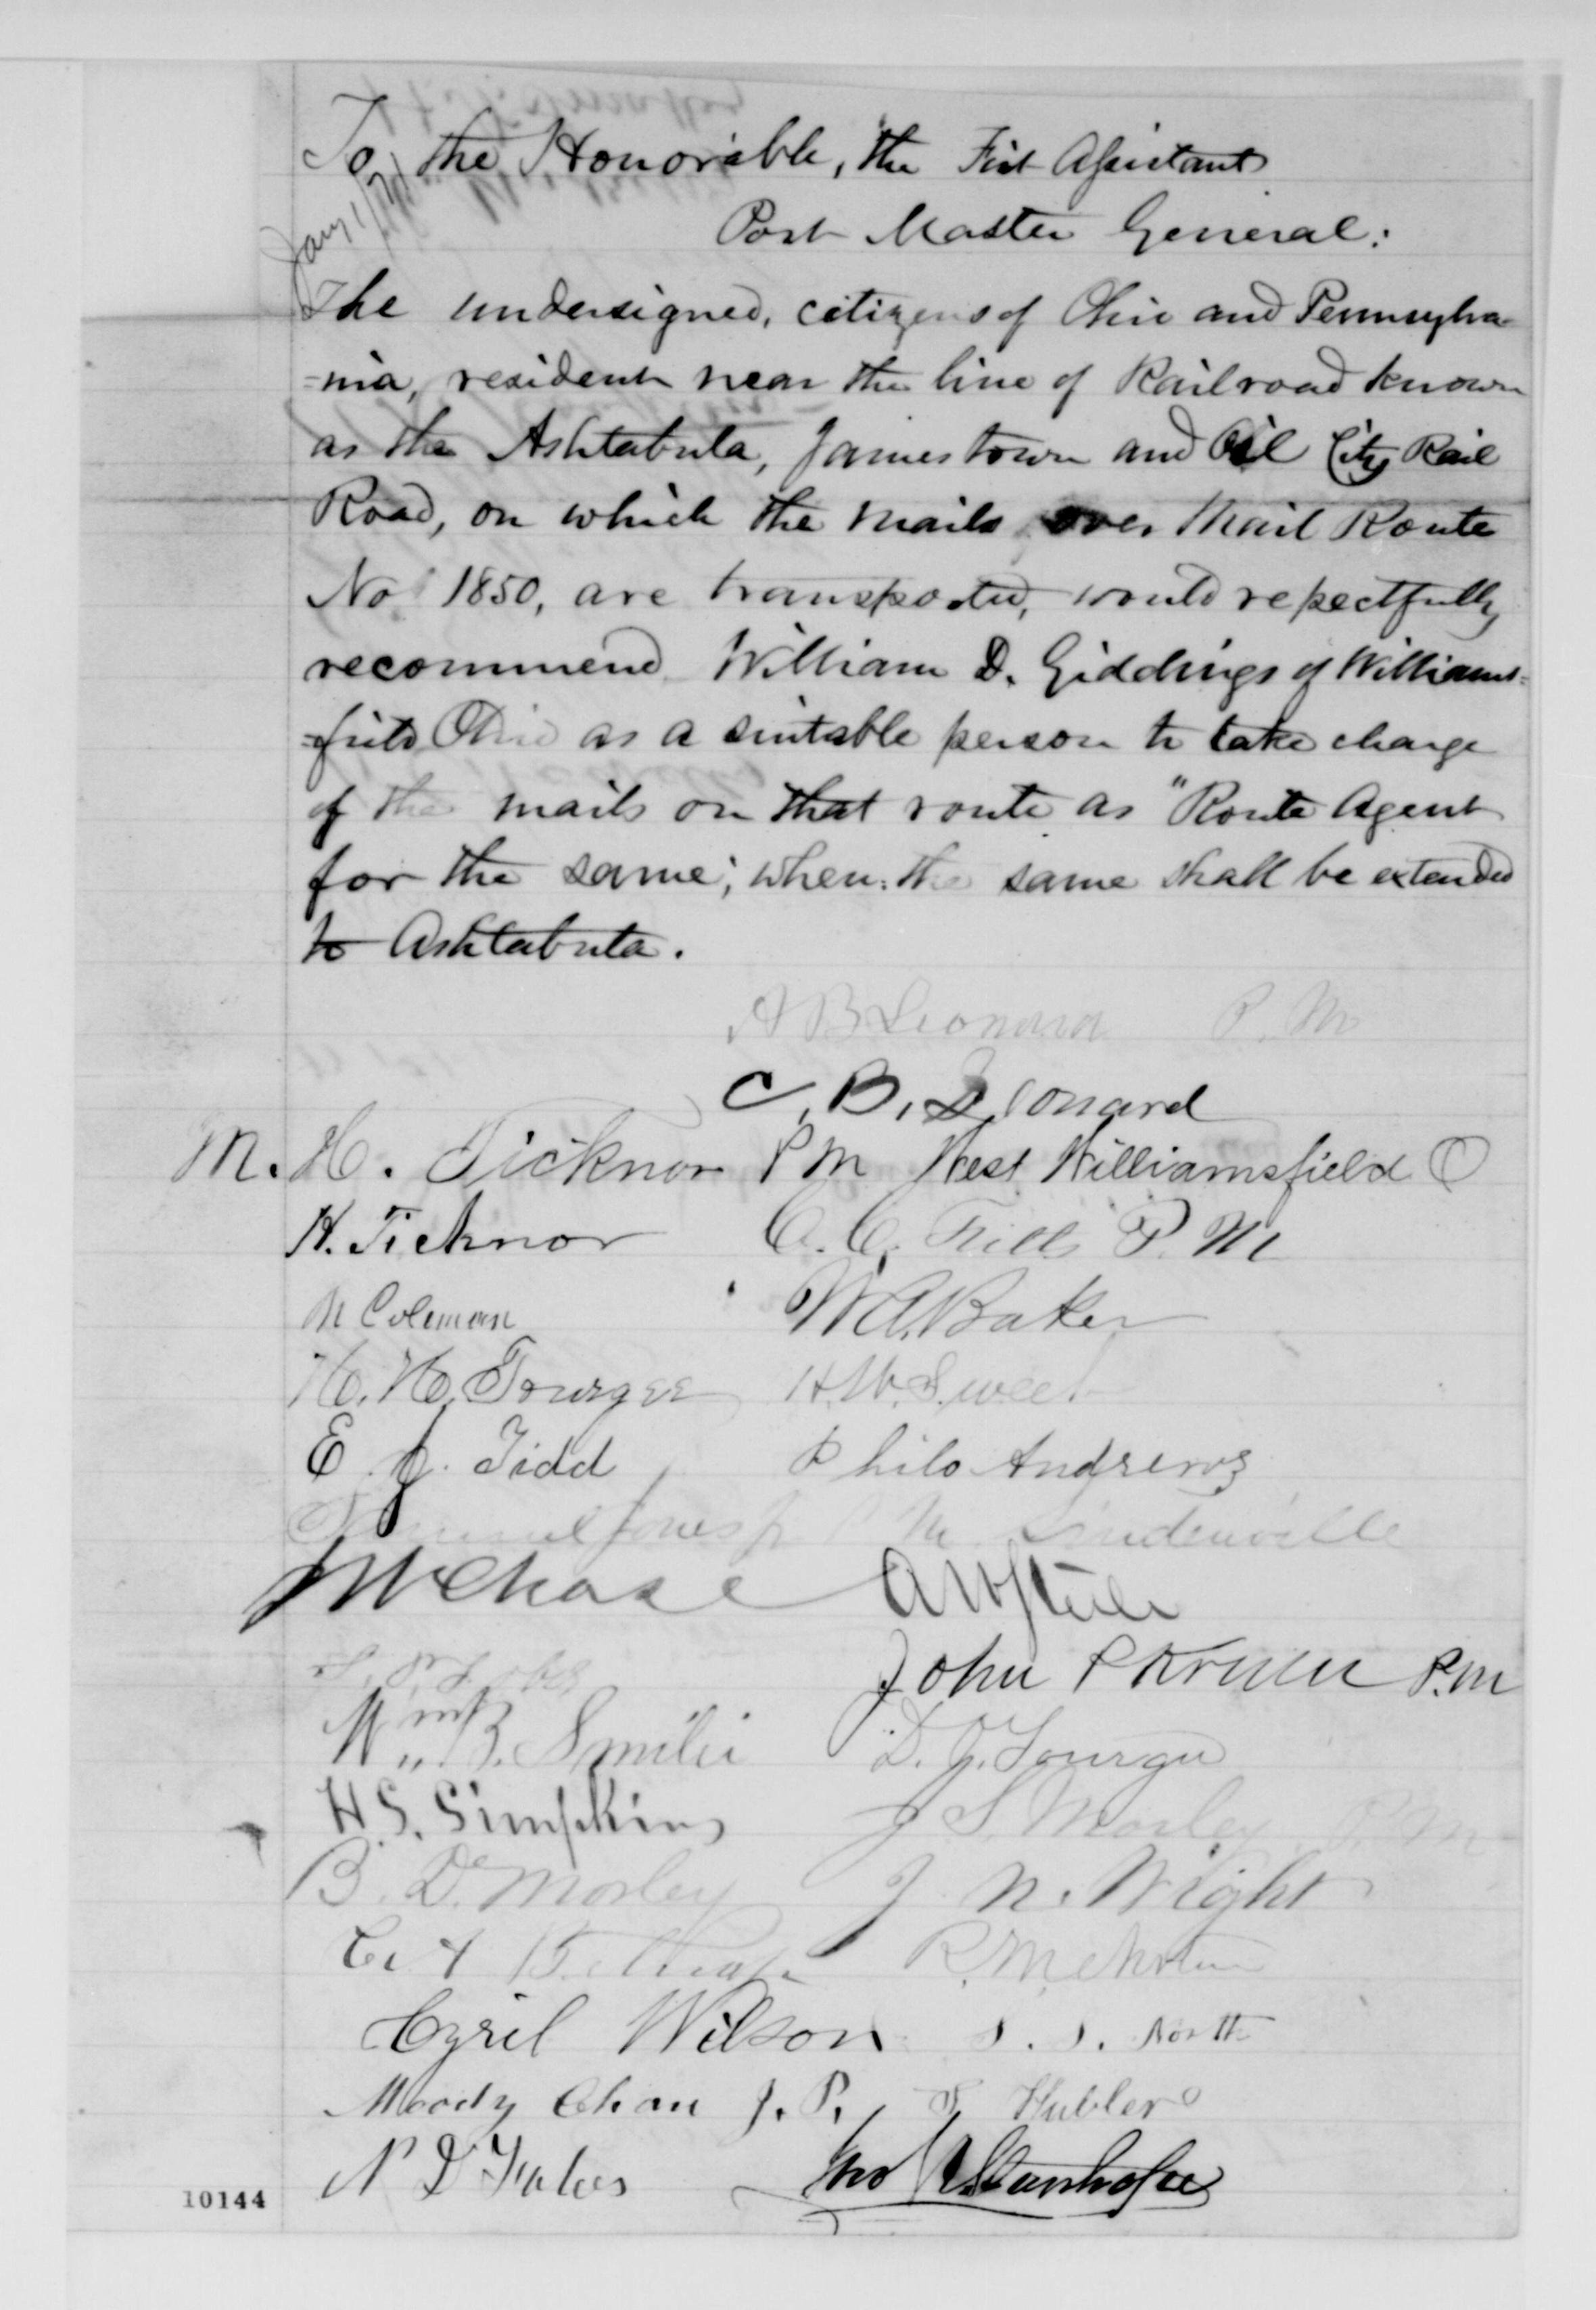 To the Honorable, the First Assistant
Jany 1/71
Post Master General:
The undersigned, citizens of Ohio and Pennsylva-
-nia, resident near the line of Railroad known
as the Ashtabula, Jamestown and Oil City Rail
Road, on which the mails over Mail Route
No 1850, are transported, would repectfully
recommend William D. Giddings of Williams=
=field Ohio as a suitable person to take charge
of the mails on that route as "Route Agent
for the same; when the same shall be extended
to Ashtabula.
A B Leonard P. M
C. B. Leonard
M. H. Ticknor P M West Williamsfield O
H. Ticknor C. C. P. M
N Coleman W A. Baker
H. H. Tourgee H. W. Sweet
E. J. Tidd Philo Andrews
Samuel Jones Jr P M Lindenville
J M Chase
John P. M
Wm B. Smilie D. J. Tourgee
H S. Simpkins J S. Morley P. M
B. D. Morley J. N. Wight
R. M.
Cyril Wilson North
Moody Chase J. P. Hubler
N D Jno Stanhope
10144